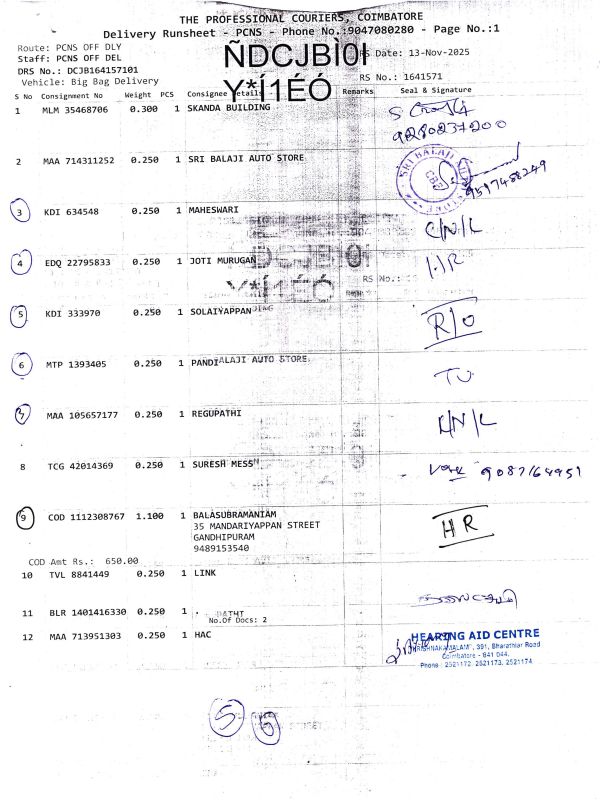 THE PROFESSIONAL COURIERS, COIMBATORE
Delivery Runsheet - PCNS - Phone No.:9047080280 - Page No.:1
Route: PCNS OFF DLY
Staff: PCNS OFF DEL
DRS No.: DCJB164157101
Vehicle: Big Bag Delivery
ÑDCJBÌ0I
Y*Í1ÉÓ
RS Date: 13-Nov-2025
RS No.: 1641571
S No Consignment No Weight PCS Consignee Details Remarks Seal & Signature
1 MLM 35468706 0.300 1 SKANDA BUILDING
9280237200
2 MAA 714311252 0.250 1 SRI BALAJI AUTO STORE
SRI BALAJI
CBE
9597488249
3 KDI 634548 0.250 1 MAHESWARI
C/N/L
4 EDQ 22795833 0.250 1 JOTI MURUGAN
5 KDI 333970 0.250 1 SOLAIYAPPAN
R/O
6 MTP 1393405 0.250 1 PANDI
ALAJI AUTO STORE
7 MAA 105657177 0.250 1 REGUPATHI
8 TCG 42014369 0.250 1 SURESH MESS
9087164951
9 COD 1112308767 1.100 1 BALASUBRAMANIAM
35 MANDARIYAPPAN STREET
GANDHIPURAM
9489153540
HR
COD Amt Rs.: 650.00
10 TVL 8841449 0.250 1 LINK
11 BLR 1401416330 0.250 1 .
No.Of Docs: 2
12 MAA 713951303 0.250 1 HAC
HEARING AID CENTRE
"KRISHNAKAMALAM", 391, Bharathiar Road
Coimbatore - 641 044.
Phone : 2521172, 2521173, 2521174
5 6